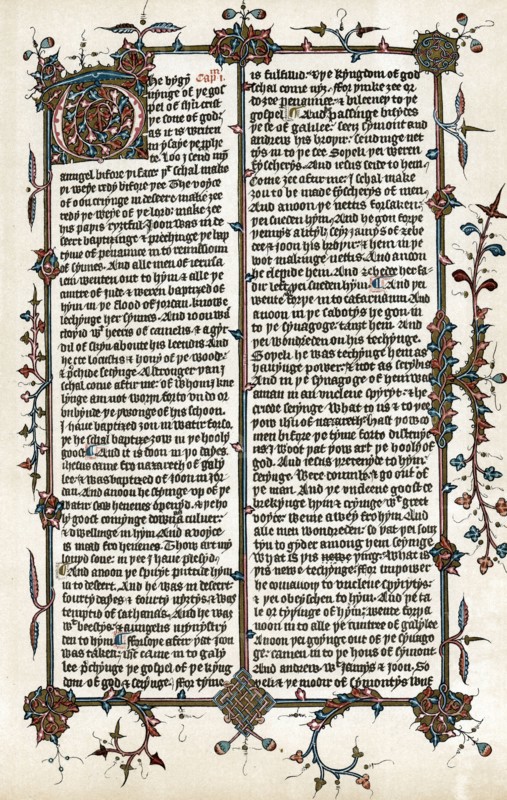 The bygyn Cap im i.
nynge of ye gos
pel of ihu crist
ye sone of god
as it is writen
in ysaye ye prophe
te. Loo I send my
aungel bifore yi face yt schal make
yi weye redy bifore yee The voyce
of oon cryinge in desert make zee
redy ye weye of ye lord: make zee
his papis ryztful Joon was in de
sert baptisinge & prechinge ye bap
tyme of penaunce in to remissioun
of synnes. And alle men of ierusa
lem wenten out to hym & alle ye
cuntre of Jude & weren baptised of
hym in ye flood of Jordan. knowe
lechynge her synnes. And ioon was
clopid wt heeris of camelis & a gyr
dil of skyn aboute his leendis And
he eete locustis & hony of ye wode:
& prechide seyinge A stronger yan I
schal come aftir me: of whom I kne
lynge am not worpi forto vndo or
vnbynde ye pwonge of his schoon.
I have baptized zou in watir forsope
he schal baptize zow in ye hooly
goost And it is doon in yo dayes.
Jhesus came fro nazareth of galy
lee & was baptized of ioon in Jor
dan. And anoon he styinge vp of ye
watir saw heuenes opnyd. & ye ho
ly goost comynge doun as culuer:
& dwellinge in hym And a voyce
is maad fro heuenes. Thou art my
louyd sone: in yee I haue plesyd
And anoon ye spiryt puttide hym
in to desert. And he was in desert
fourty dayes & fourty nyztys: & was
temptid of sathanas. And he was
wt beestys: & aungelis mynystry
den to hym Forsope after yat joon
was taken: ihc came in to galy
lee prechynge ye gospel of ye kyng
dom of god & seyinge. Ffor tyme
is fulfild. & ye kyngdom of god
schal come nyz. Ffor ynke zee or
do zee penaunce: & bileeuep to ye
gospel And passinge bisydes
ye se of galilee: seez symont and
andrew his bropir. sendinge net
tys in to ye see Sopeli yei weren
fyscherys. And iesus seide to hem.
Come zee aftir me: I schal make
zou to be made fyscherys of men.
And anoon ye nettis forsaken:
yei sueden hym. And he gon forpe
yennys a lityl: seez iamys of zebe
dee & ioon his bropir & hem in ye
boot makinge nettis. And anoon
he clepide hem. And zebedee her fa
dir left: yei sueden hym. And yei
wente forpe in to cafarnaum And
anoon in ye sabotys he gon in
to ye synagoge tauzt hem And
yei wondreden on his techynge.
Sopeli he was techynge hem as
hauynge power: & not as scribis
And in ye synagoge of hem was
a man in an vnclene spyryt: & he
criede seyinge What to us & to yee
yow ihu of nazareth hast yow co
men bifore ye tyme forto distruye
us I woot yat yow art ye hooly of
god. And iesus pretenyde to hym
seyinge. Were doumbe & go out of
ye man And ye vnclene goost de
brekynge hym & cryinge wt greet
voyce: wente awey fro hym And
alle men wondreden: so yat yei sou
tyn to gyder among hem seyinge
What is yis newe ying: What is
yis newe techynge: for in power
he comaundip to vnclene spyrytys:
& yei obeyschen to hym And ye ta
le or tyyinge of hym: wente forp a
noon in to alle ye cuntree of galylee
Anoon yei goynge out of ye synago
ge: camen in to ye hous of symont
And andrew. wt Jamys & Joon. So
peli & ye modir of symontys wiif